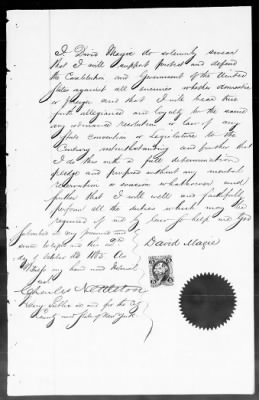 I David Magie do solemnly swear
that I will support protect and defend
the Constitution and Government of the United
States against all enemies whether domestic
or foreign and that I will bear true
faith allegiance and loyalty to the same
any ordinance resolution or law of any
State Convention or Legislature to the
Contrary notwithstanding and further that
I do this with a full determination
pledge and purpose without any mental
reservation or evasion whatsoever and
further that I will well and faithfully
perform all the duties which may be
required of me by law So help me God
Subscribed in my presence and
sworn to before me this 2nd
day of October AD 1865. As
Witness my hand and Notarial
seal
David Magie
Charles Nettleton
Notary Public in and for the City
County and State of New York